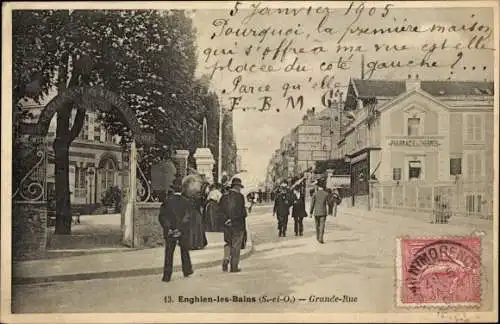 5 Janvier 1905
Pourquoi, la première maison
qui s'offre à ma vue est-elle
placée du côté gauche ?...
Parce qu'elle
E. B. M.
PHARMACIE
THERMES
13. Enghien-les-Bains (S.-et-O.) — Grande-Rue